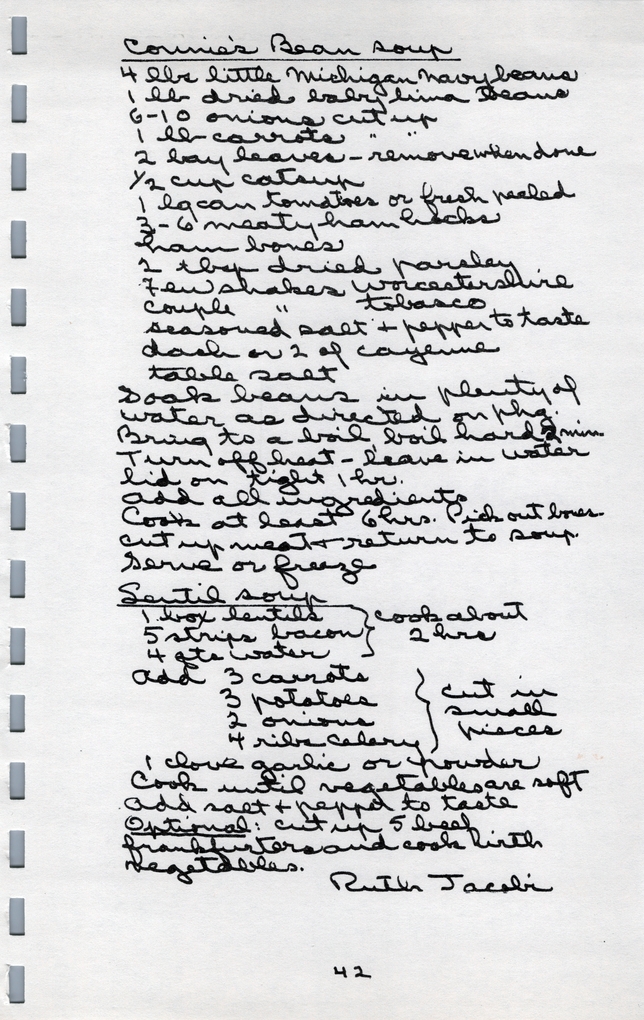 Connie's Bean Soup
4 lbs little Michigan Navy beans
1 lb dried baby lima Beans
6-10 onions cut up
1 lb carrots " "
2 bay leaves - remove when done
1/2 cup catsup
1 lg can tomatoes or fresh peeled
3-6 meaty ham hocks
ham bones
2 tbsp dried parsley
Few shakes Worcestershire
couple " tobasco
seasoned salt + pepper to taste
dash or 2 of cayenne
table salt
Soak beans in plenty of
water as directed on pkg.
Bring to a boil, boil hard 2 min.
Turn off heat - leave in water
lid on tight 1 hr.
add all ingredients
Cook at least 6 hrs. Pick out bones.
cut up meat + return to soup.
Serve or freeze
Lentil soup
1 box lentils } cook about
5 strips bacon } 2 hrs
4 qts water
add 3 carrots
3 potatoes } cut in
2 onions } small
4 ribs celery } pieces
1 clove garlic or powder
Cook until vegetables are soft
add salt + pepper to taste
Optional: cut up 5 beef
frankfurters and cook with
vegetables.
Ruth Jacobi
42